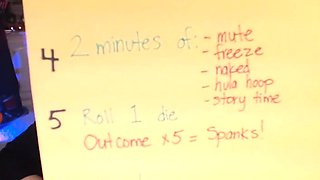 4 2 minutes of: - mute
- freeze
- naked
- hula hoop
- story time
5 Roll 1 die
Outcome x5 = Spanks!